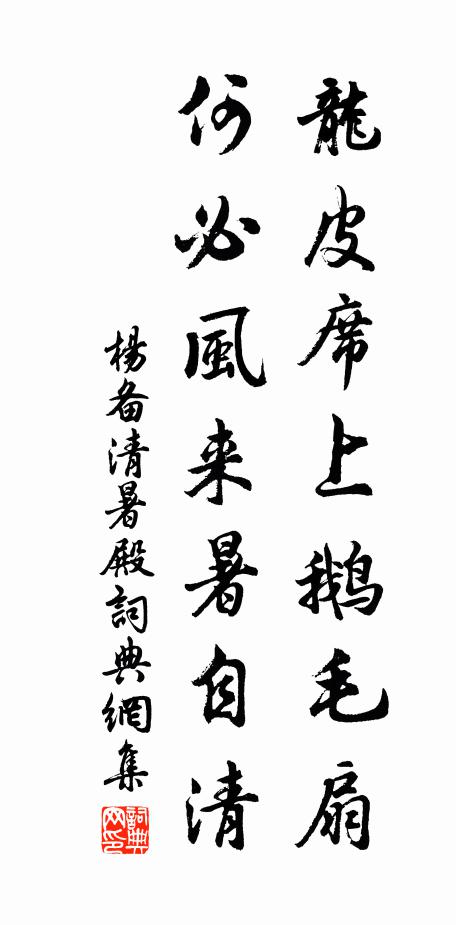 龍皮席上鵝毛扇
何必風来暑自清
楊备清暑殿詞典網集
詞典网印